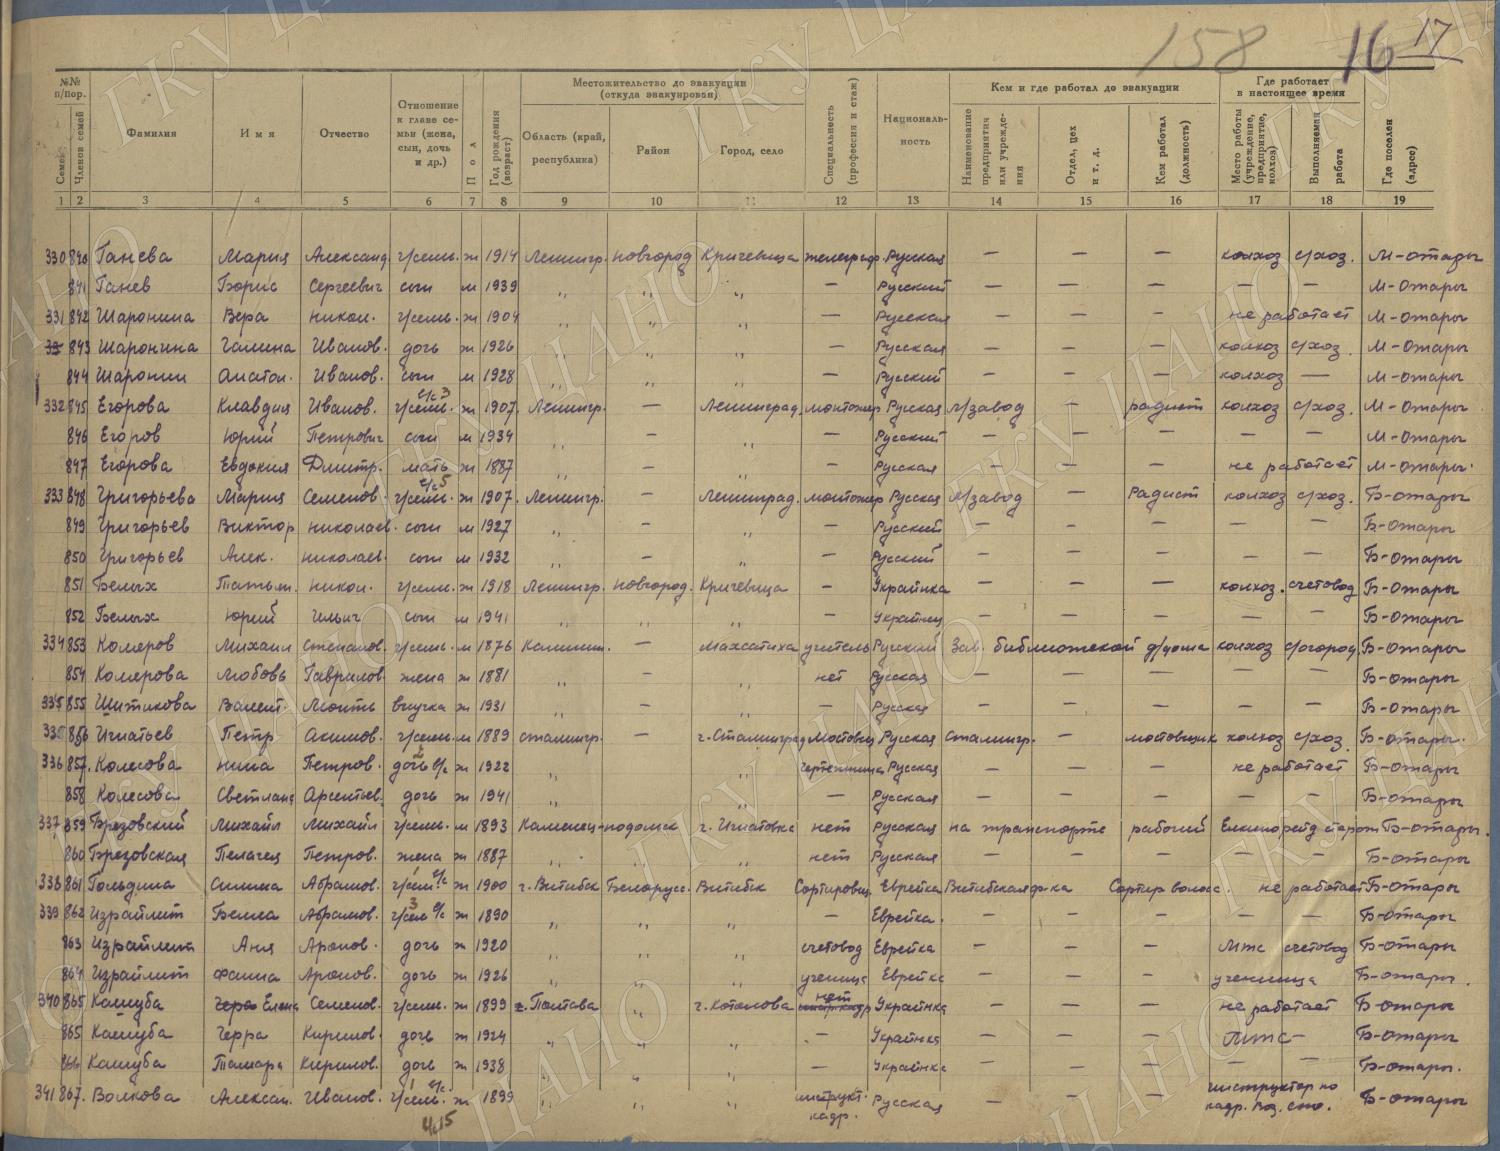 158 16 17
№№ п/пор.
Семей
Членов семей
Фамилия
Имя
Отчество
Отношение к главе семьи (жена, сын, дочь и др.)
Пол
Год рождения (возраст)
Местожительство до эвакуации (откуда эвакуирован)
Область (край, республика)
Район
Город, село
Специальность (профессия и стаж)
Националь-ность
Кем и где работал до эвакуации
Наименование предприятия или учреждения
Отдел, цех и т. д.
Кем работал (должность)
Где работает в настоящее время
Место работы (учреждение, предприятие, колхоз)
Выполняемая работа
Где поселен (адрес)
1 2 3 4 5 6 7 8 9 10 11 12 13 14 15 16 17 18 19
330 840 Ганева Мария Александ. г/семь. ж 1914 Ленингр. Новгород Кричевица телеграф. Русская — — — колхоз с/хоз. М-отары
841 Ганев Борис Сергеевич сын м 1939 ,, ,, ,, — Русский — — — — — М-отары
331 842 Шаронина Вера Никол. г/семь. ж 1904 ,, ,, ,, — Русская — — — не работает М-отары
843 Шаронина Галина Иванов. дочь ж 1926 ,, ,, ,, — Русская — — — колхоз с/хоз. М-отары
844 Шаронин Анатол. Иванов. сын м 1928 ,, ,, ,, — Русский — — — колхоз — М-отары
332 845 Егорова Клавдия Иванов. г/семь. в/с 3 ж 1907 Ленингр. — Ленинград. монтажер Русская л/завод — радист колхоз с/хоз. М-отары
846 Егоров Юрий Петрович сын м 1934 ,, — ,, — Русский — — — — — М-отары
847 Егорова Евдокия Дмитр. мать ж 1887 ,, — ,, — Русская — — — не работает М-отары.
333 848 Григорьева Мария Семенов. г/семь. в/с 5 ж 1907. Ленингр. — Ленинград. монтожер Русская л/завод — Радист колхоз с/хоз. Б-отары
849 Григорьев Виктор Николаев. сын м 1927 ,, — ,, — Русский — — — — — Б-отары
850 Григорьев Алек. Николаев. сын м 1932 ,, — ,, — Русский — — — — — Б-отары
851 Белых Татьян. Никол. г/семь. ж 1918 Ленингр. Новгород. Кричевица — Украинка — — — колхоз. счетовод Б-отары
852 Белых Юрий Ильич сын м 1941 ,, ,, ,, — Украинец — — — — — Б-отары
334 853 Комеров Михаил Степанов. г/семь. м 1876 Калинин. — Махсатиха учитель Русский Зав. библиотекой д/дома колхоз с/огород Б-отары
854 Комерова Любовь Гаврилов. жена ж 1881 ,, — ,, нет Русская — — — — — Б-отары
335 855 Шитикова Валент. внучка ж 1931 ,, — ,, — Русская — — — — — Б-отары
335 856 Игнатьев Петр Акимов. г/семь. м 1889 Сталингр. — г. Сталинград Мостовщ Русская Сталингр. — мостовщик колхоз с/хоз. Б-отары.
336 857. Колесова Нина Петров. дочь в/с 2 ж 1922 ,, ,, чертежница Русская — — — не работает Б-отары
858 Колесова Светлана Арсентьев. дочь ж 1941 ,, ,, — Русская — — — — — Б-отары
337 859 Брезовский Михайл Михайл г/семь. м 1893 Каменец-подомск г. Игнатовка нет Русская на транспорте рабочий Б-отары.
860 Брезовская Пелагея Петров. жена ж 1887 ,, ,, ,, нет Русская — — — — — Б-отары
338 861 Гольдина Симма Абрамов. г/сем в/с 1 ж 1900 г. Витебск Белорусс. Витебск Сортировщ Еврейка Витебская ф-ка Сортир волос. не работает Б-отары
339 862 Израйлит Белла Абрамов. г/сем в/с 3 ж 1890 ,, ,, ,, — Еврейка. — — — — — Б-отары
863 Израйлит Аня Аронов. дочь ж 1920 ,, ,, ,, счетовод Еврейка — — — Мтс счетовод Б-отары
864 Израйлит Фаина Аронов. дочь ж 1926 ,, ,, ,, ученица Еврейка — — — ученица Б-отары.
340 865 Кашуба Елена Семенов. г/семь. ж 1899 г. Полтава ,, г. Котелова нет Украинка не работает Б-отары
865 Кашуба Герра Кирилов. дочь ж 1924 ,, ,, ,, — Украинка — — — Мтс — Б-отары
866 Кашуба Тамара Кирилов. дочь ж 1938 ,, ,, ,, — Украинка — — — — — Б-отары.
341 867. Волкова Алексан. Иванов. г/семь. в/с 1 ж 1899 ,, ,, инструкт. кадр. Русская — — — инструктор по кадр. Б-отары
ГКУ ЦАНО